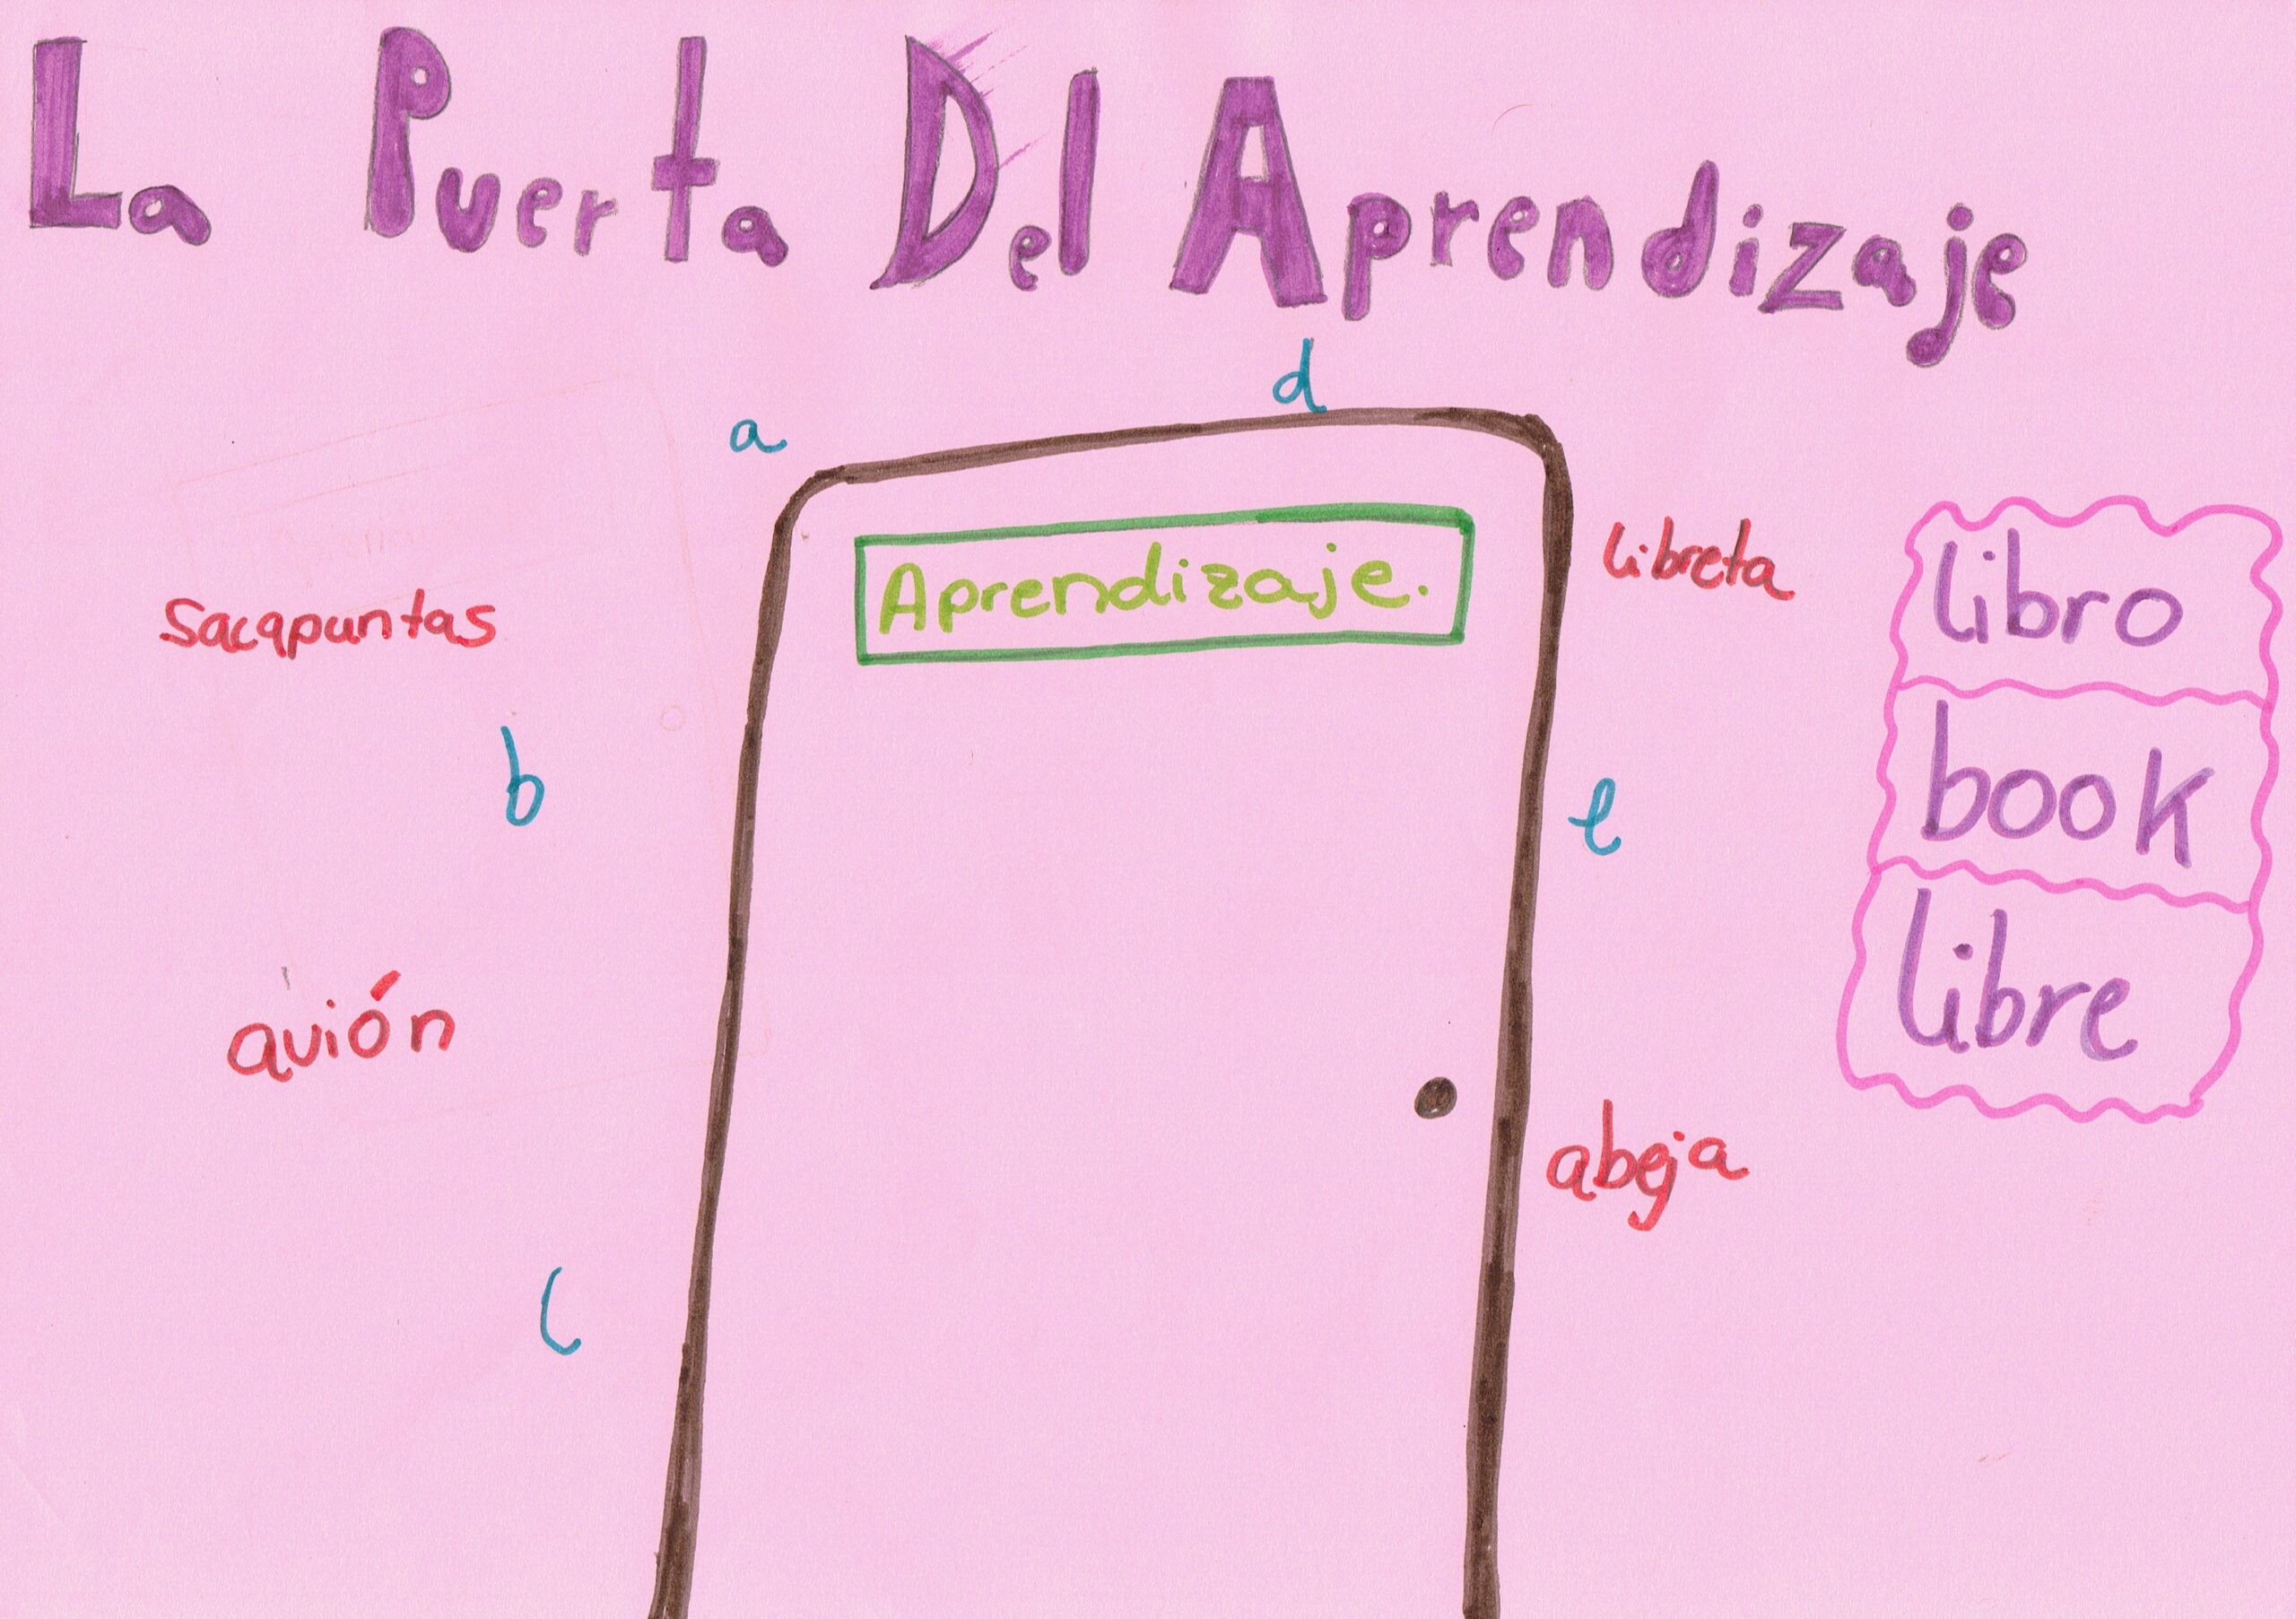 La Puerta Del Aprendizaje
d
a
Aprendizaje.
libreta
libro
Sacapuntas
b
e
book
avión
libre
abeja
c